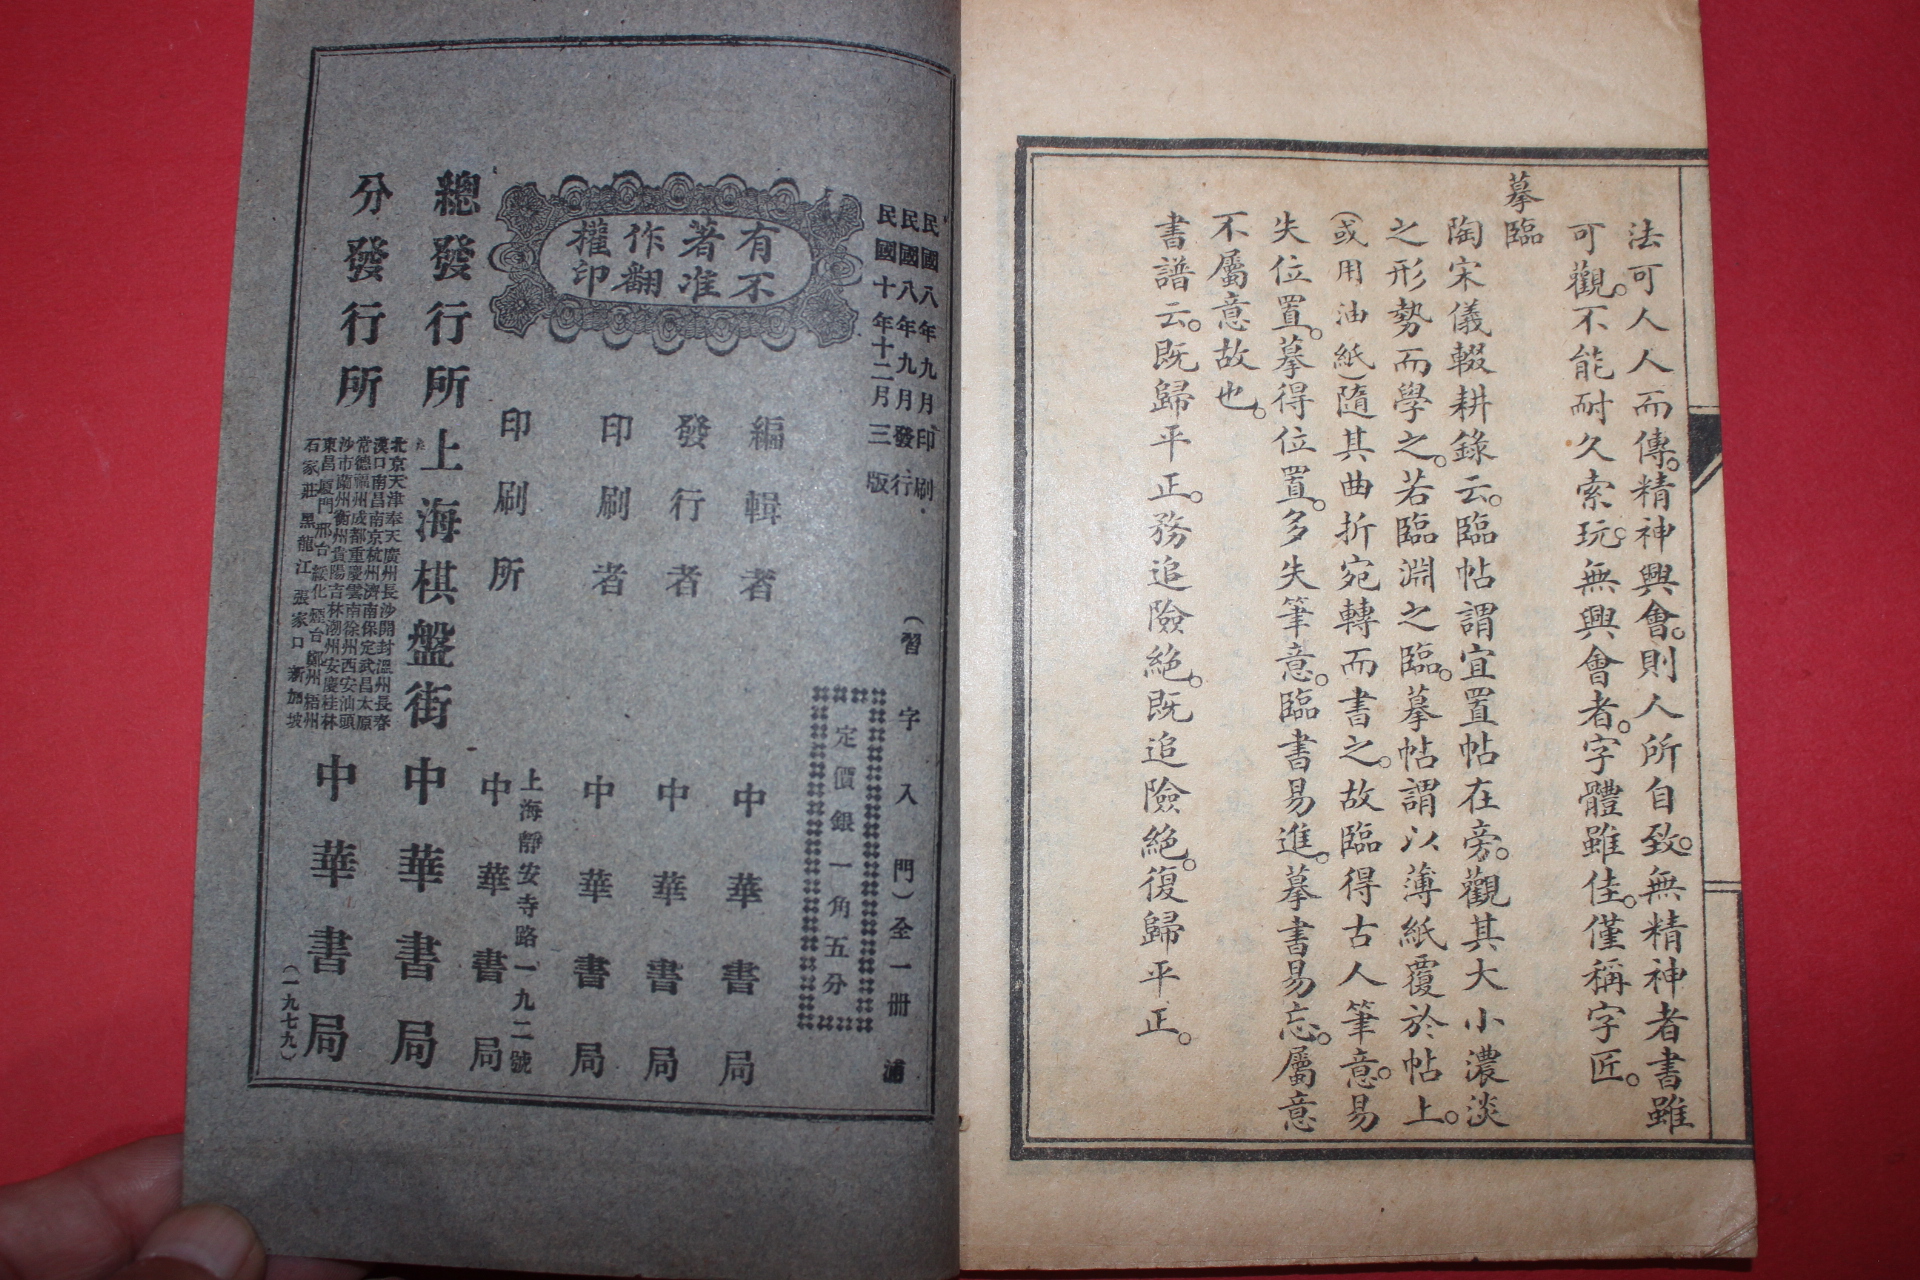 法可人人而傳。精神興會。則人所自致。無精神者書雖
可觀。不能耐久索玩。無興會者。字體雖佳。僅稱字匠。
摹臨
陶宋儀輟耕錄云。臨帖謂宜置帖在旁。觀其大小濃淡
之形勢而學之。若臨淵之臨。摹帖謂以薄紙覆於帖上。
(或用油紙)隨其曲折宛轉而書之。故臨得古人筆意。易
失位置。摹得位置。多失筆意。臨書易進。摹書易忘。屬意
不屬意故也。
書譜云。既歸平正。務追險絕。既追險絕。復歸平正。
民國八年九月印刷
民國八年九月發行
民國十年十二月三版
(習字入門)全一冊
定價銀一角五分
有不
著准
作翻
權印
編輯者 中華書局
發行者 中華書局
印刷者 中華書局
上海靜安寺路一九二號
印刷所 中華書局
總發行所 上海棋盤街 中華書局
分發行所
北京天津奉天廣州長沙開封溫州長春
漢口南昌南京杭州濟南保定武昌太原
常德福州成都重慶雲南徐州西安汕頭
沙市蘭州衡州貴陽吉林潮州安慶桂林
東昌廈門邢台綏化煙台鄭州梧州
石家莊黑龍江張家口新加坡
中華書局
(一九七九)